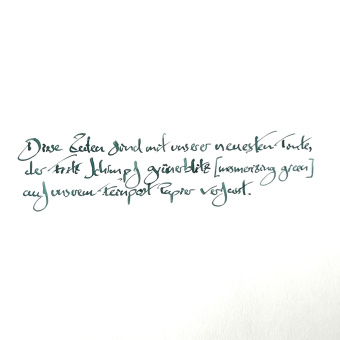 Diese Zeilen sind mit unserer neuesten Tinte,
der Fritz Schimpf grünerblitz [mesmerising green]
auf unserem Feinpost Papier verfasst.